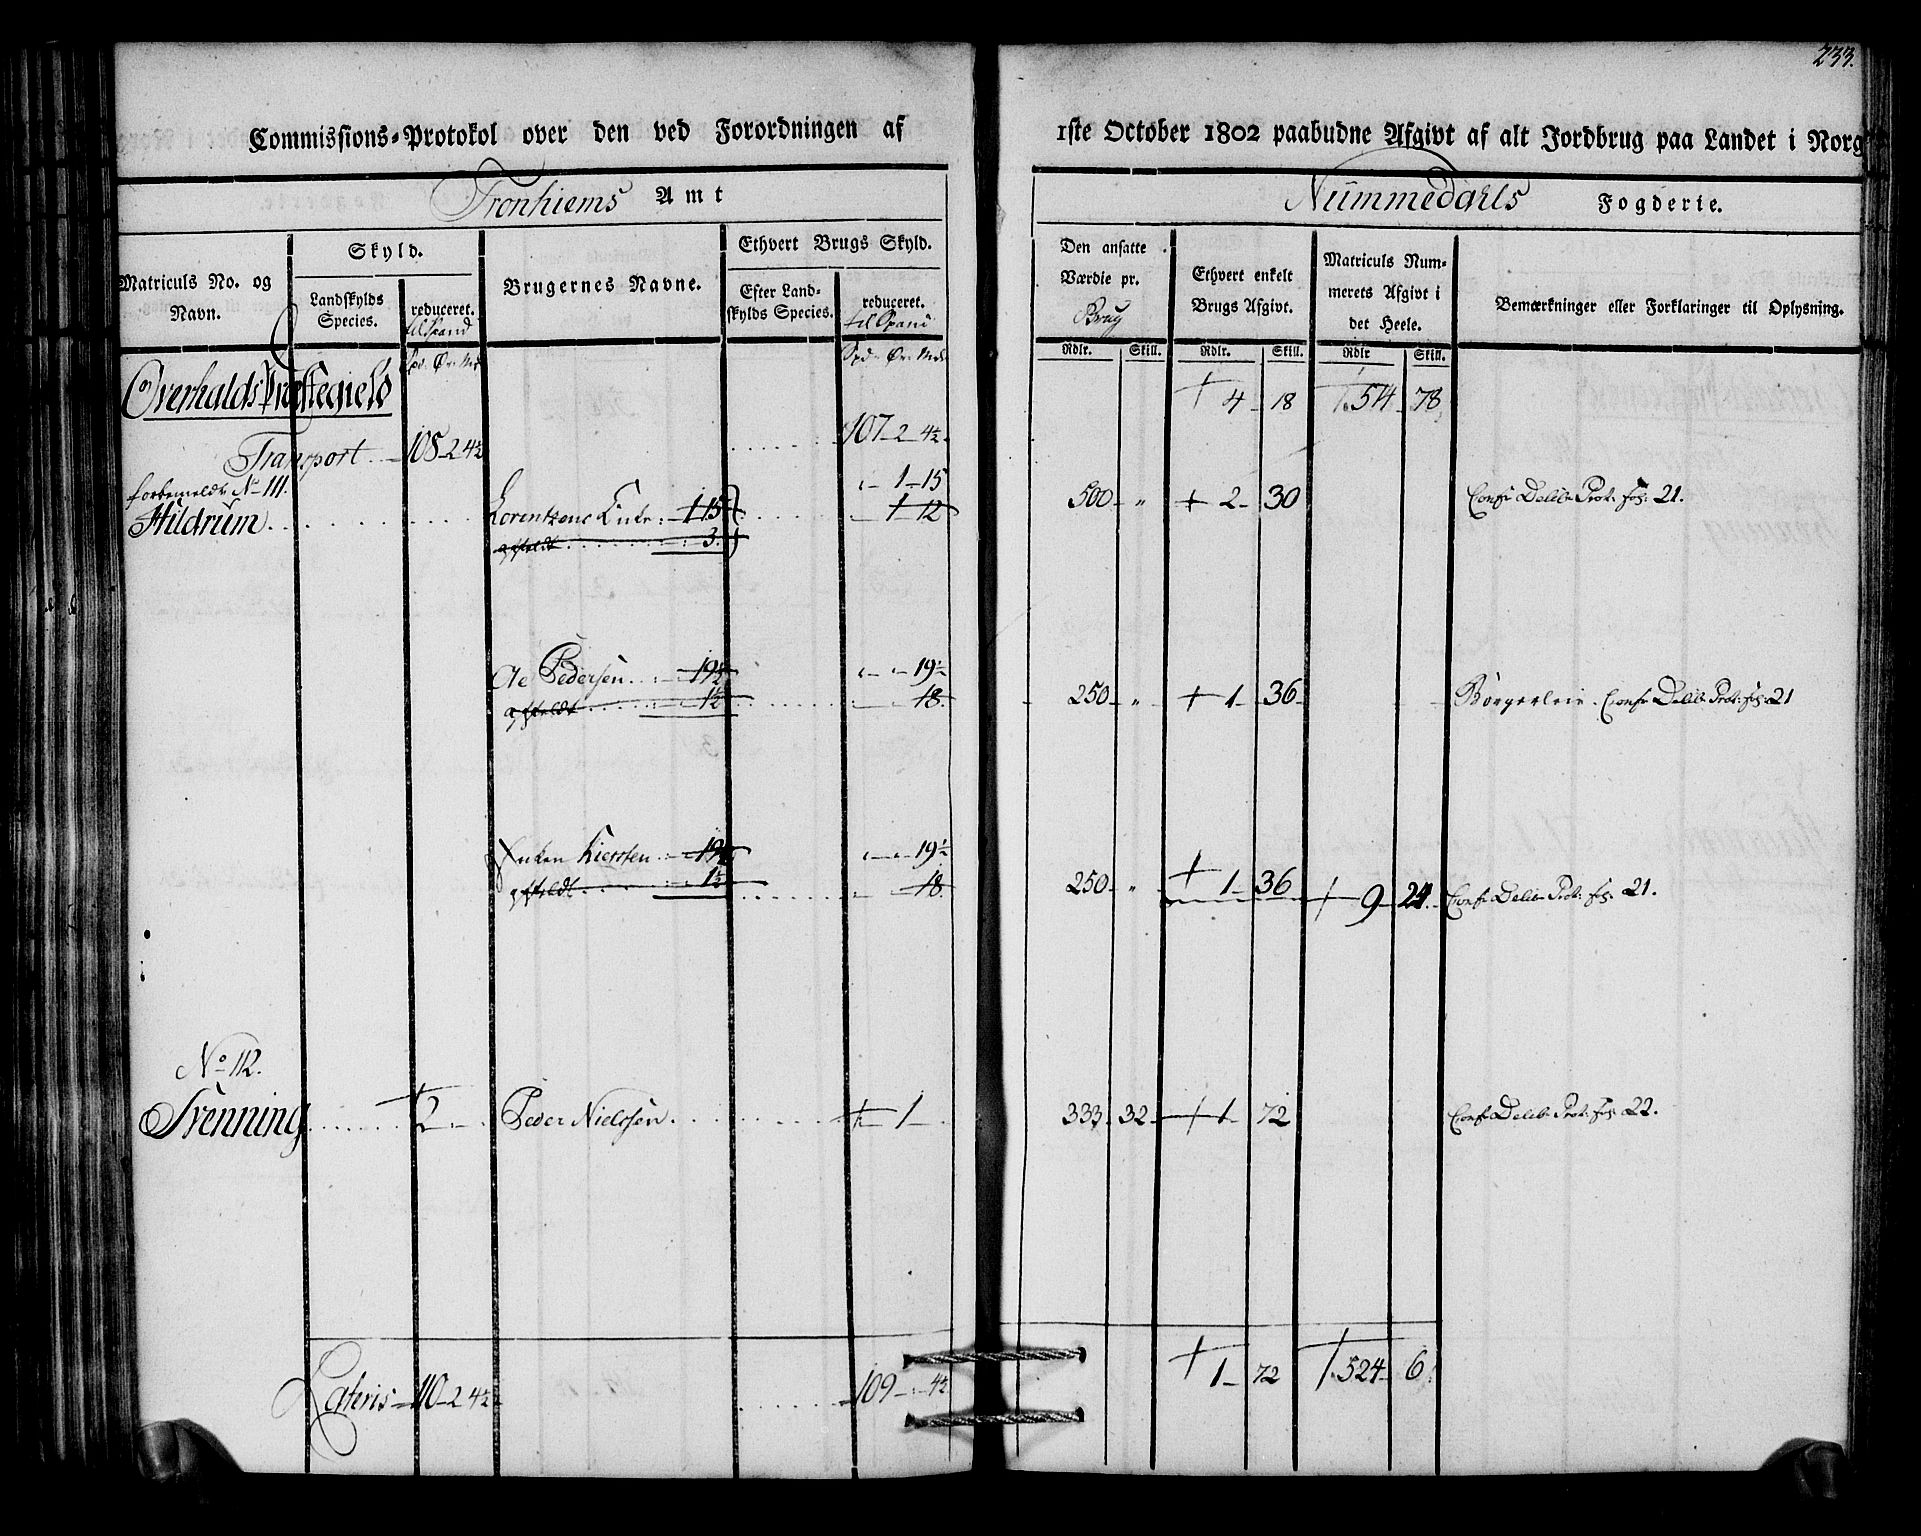 233.
Commissions-Protokol over den ved Forordningen af 1ste October 1802 paabudne Afgivt af alt Jordbrug paa Landet i Norg
Tronhiems Amt
Nummedahls Fogderie.
Matriculs No. og Navn.
Skyld.
Landskylds Species.
reduceret.
Brugernes Navne.
Ethvert Brugs Skyld.
Efter Landskylds Species.
reduceret. til Spand
Den ansatte Værdie pr. Brug
Ethvert enkelt Brugs Afgivt.
Matriculs Nummerets Afgivt i det Heele.
Bemærkninger eller Forklaringer til Oplysning.
Spd. Ør. Mk. Spd. Ør. Mk.
Rdlr. Skill. Rdlr. Skill. Rdlr Skill.
Overhalds Præstegield
4 18 514 78
Transport 108 2 4½ 107 2 4½
forbemeldte No 111.
1 15
Hildrum Lorentzens Enke 1 15 1 12 500 " 2 30 Conf. Delib. Prot. fol: 21.
affældt 3
Ole Pedersen 19½ 19½
affældt 1½ 18 250 " 1 36 Børgerleie. Conf. Delib. Prot: fol: 21
Enken Kiersten 19½ 19½
affældt 1½ 18 250 " 1 36 9 24 Conf. Delib. Prot: fol: 21.
No 112.
Trenning 2 Peder Nielssen 1 333 32 1 72 Conf. Delib. Prot. fol: 22.
Lateris 110 2 4½ 109 4½ 1 72 524 6